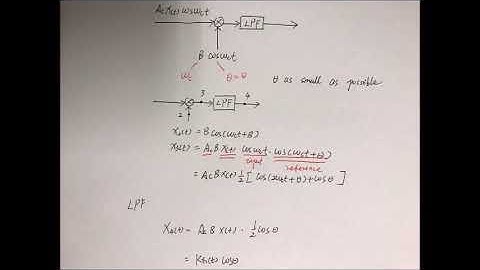 Acx(t) cosωct
LPF
B cosωct
ωc θ=0
θ as small as possible
3 4
LPF
2
x2(t) = B cos(ωct+θ)
x3(t) = AcB x(t) cosωct · cos(ωct+θ)
input reference
= AcB x(t) 1/2 [ cos(2ωct+θ) + cosθ ]
LPF
x4(t) = AcB x(t) · 1/2 cosθ
= K x(t) cosθ